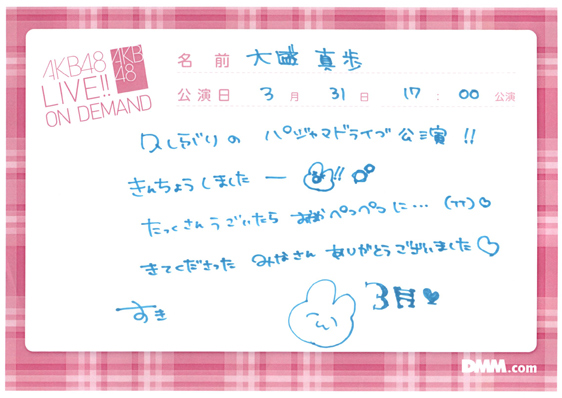 AKB48
LIVE!!
ON DEMAND
AKB
48
名前 大盛 真歩
公演日 3月 31日 17:00 公演
久しぶりの パジャマドライブ公演 !!
きんちょうしました ー !!
たっくさんうごいたら おなかぺっぺっに… (TT)
きてくださった みなさん ありがとうございました♡
すき
3月♥
DMM.com